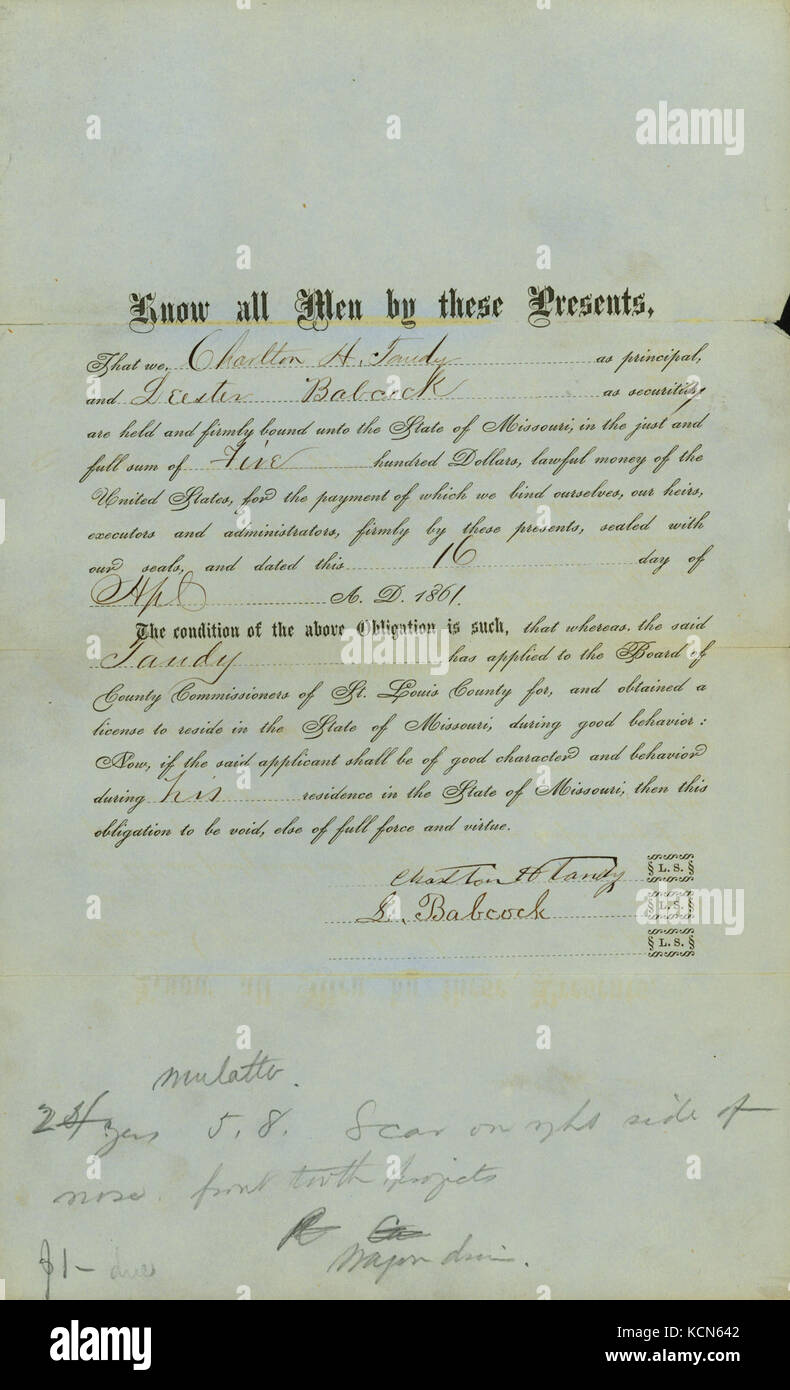 Know all Men by these Presents,
That we, Charlton H. Tandy as principal,
and Leester Babcock as security
are held and firmly bound unto the State of Missouri, in the just and
full sum of Five hundred Dollars, lawful money of the
United States, for the payment of which we bind ourselves, our heirs,
executors and administrators, firmly by these presents, sealed with
our seals, and dated this 16 day of
Apl A. D. 1861.
The condition of the above Obligation is such, that whereas, the said
Tandy has applied to the Board of
County Commissioners of St. Louis County for, and obtained a
license to reside in the State of Missouri, during good behavior:
Now, if the said applicant shall be of good character and behavior
during his residence in the State of Missouri, then this
obligation to be void, else of full force and virtue.
Charlton H Tandy L. S.
L. Babcock L. S.
L. S.
mulatto.
24 yers 5.8. Scar on right side of
nose. front tooth projects
Wagon
$1- due
alamy
a
alamy stock photo
KCN642
www.alamy.com